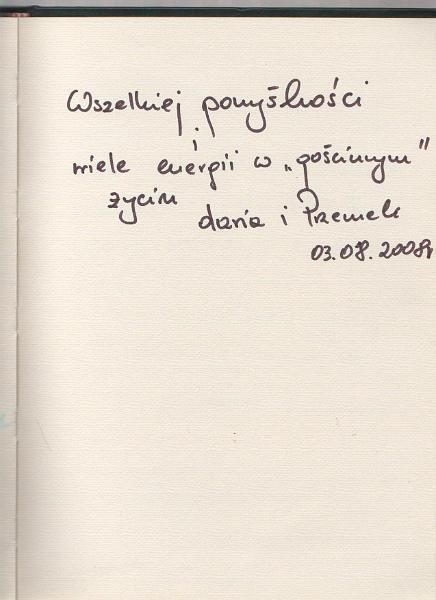 Wszelkiej pomyślności
i
wiele energii w „gościnnym"
życiu
daria i Przemek
03.08.2008r